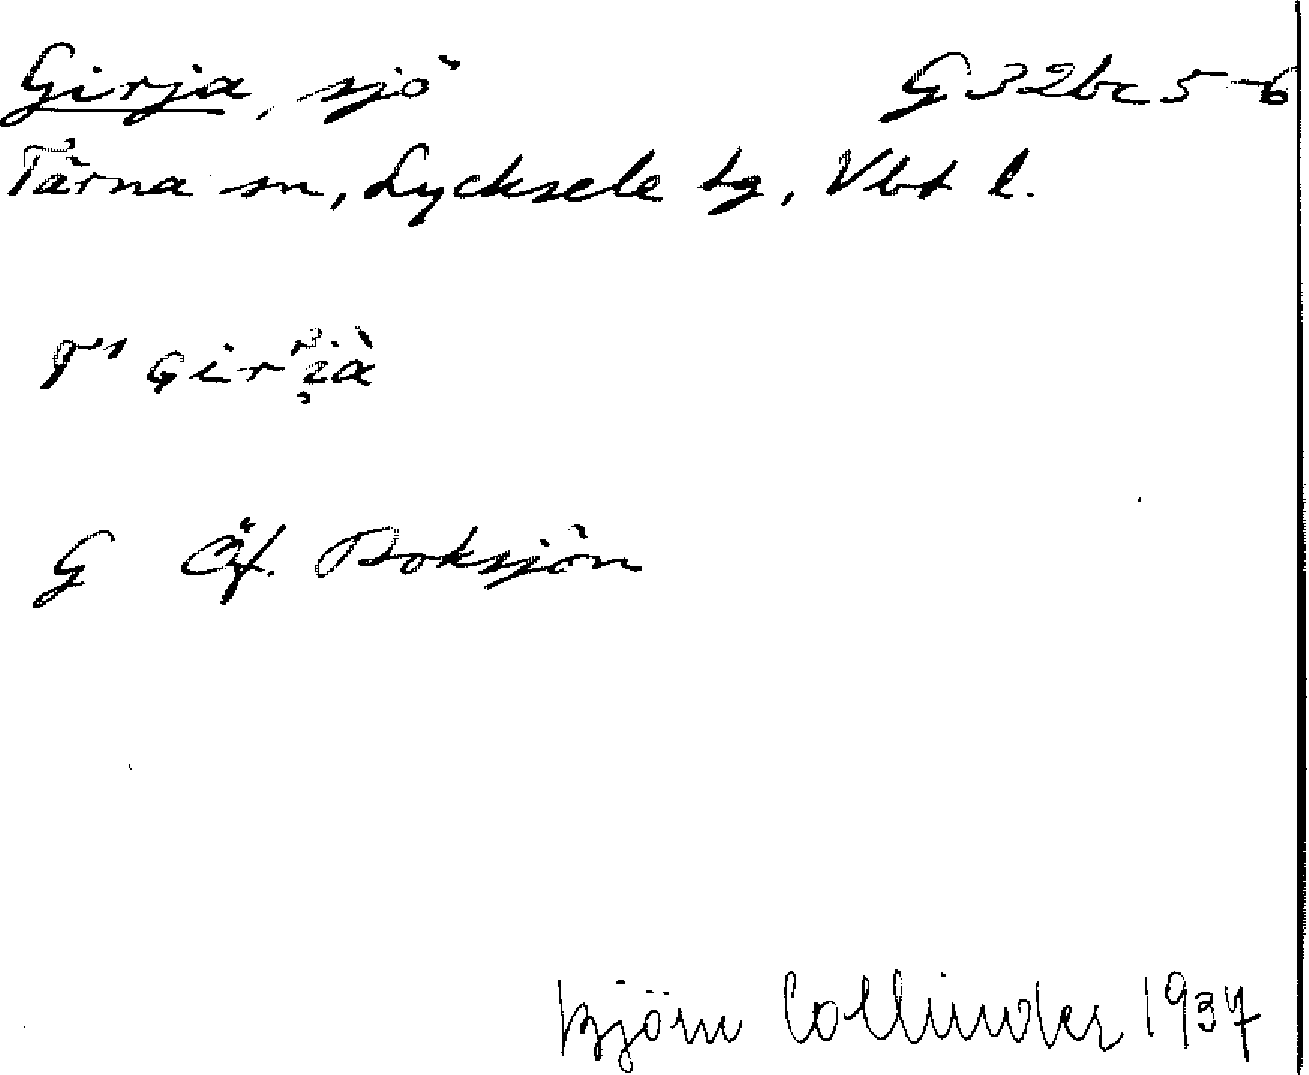 Girja, sjö G 32bc 5-6
Tärna sn, Lycksele tg, Vbt l.
G Öf. Boksjön
Björn Collinder 1937